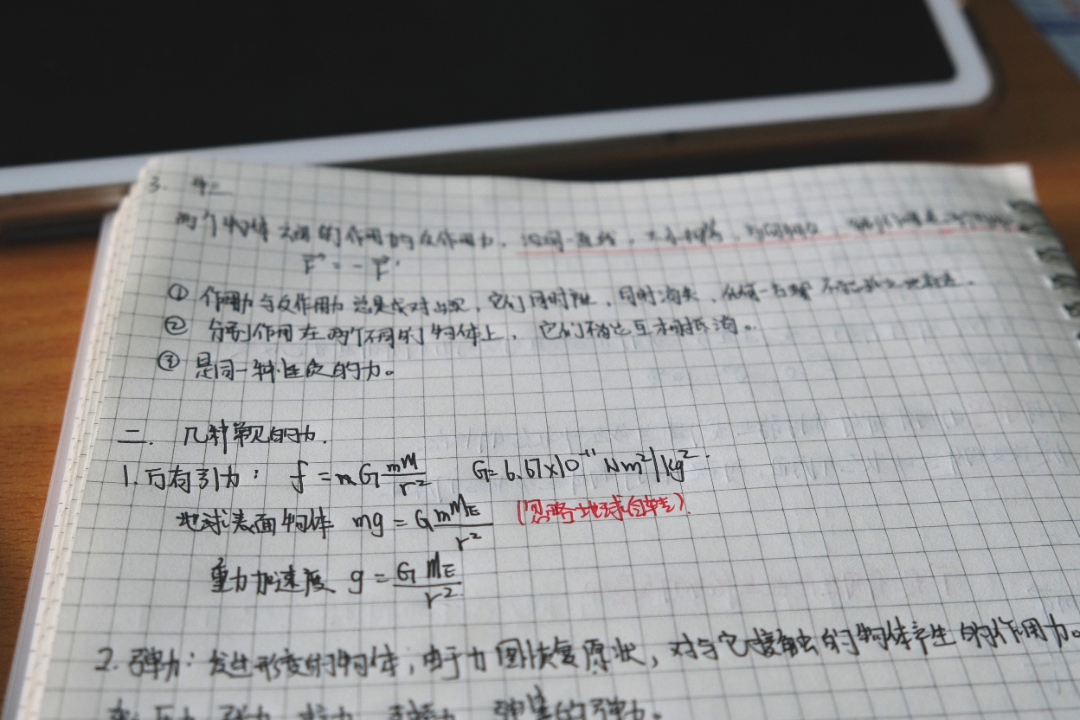 3. 牛三
两个物体之间的作用力与反作用力，沿同一直线，大小相等，方向相反，
F = -F'
① 作用力与反作用力总是成对出现，它们同时产生，同时消失，
② 分别作用在两个不同的物体上，它们不能互相抵消。
③ 是同一种性质的力。
二. 几种常见的力.
1. 万有引力： f = G mM/r² G=6.67×10⁻¹¹ Nm²/kg².
地球表面物体 mg = G mM_E/r² (忽略地球自转).
重力加速度 g = G M_E/r²
2. 弹力：发生形变的物体，由于力图恢复原状，对与它接触的物体产生的作用力。
弹簧的弹力。